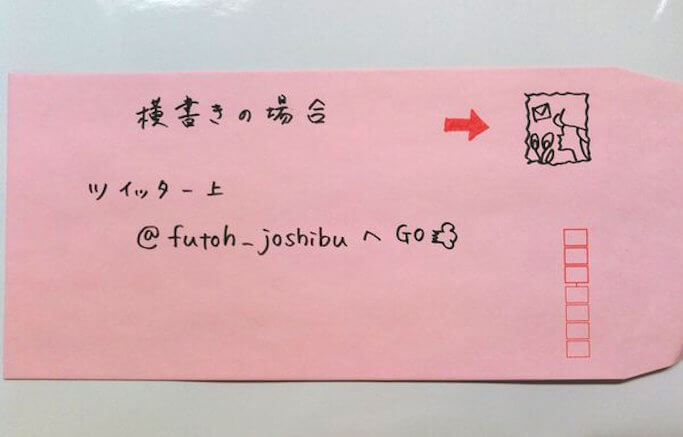 横書きの場合
ツイッター上
@futoh_joshibuへGO